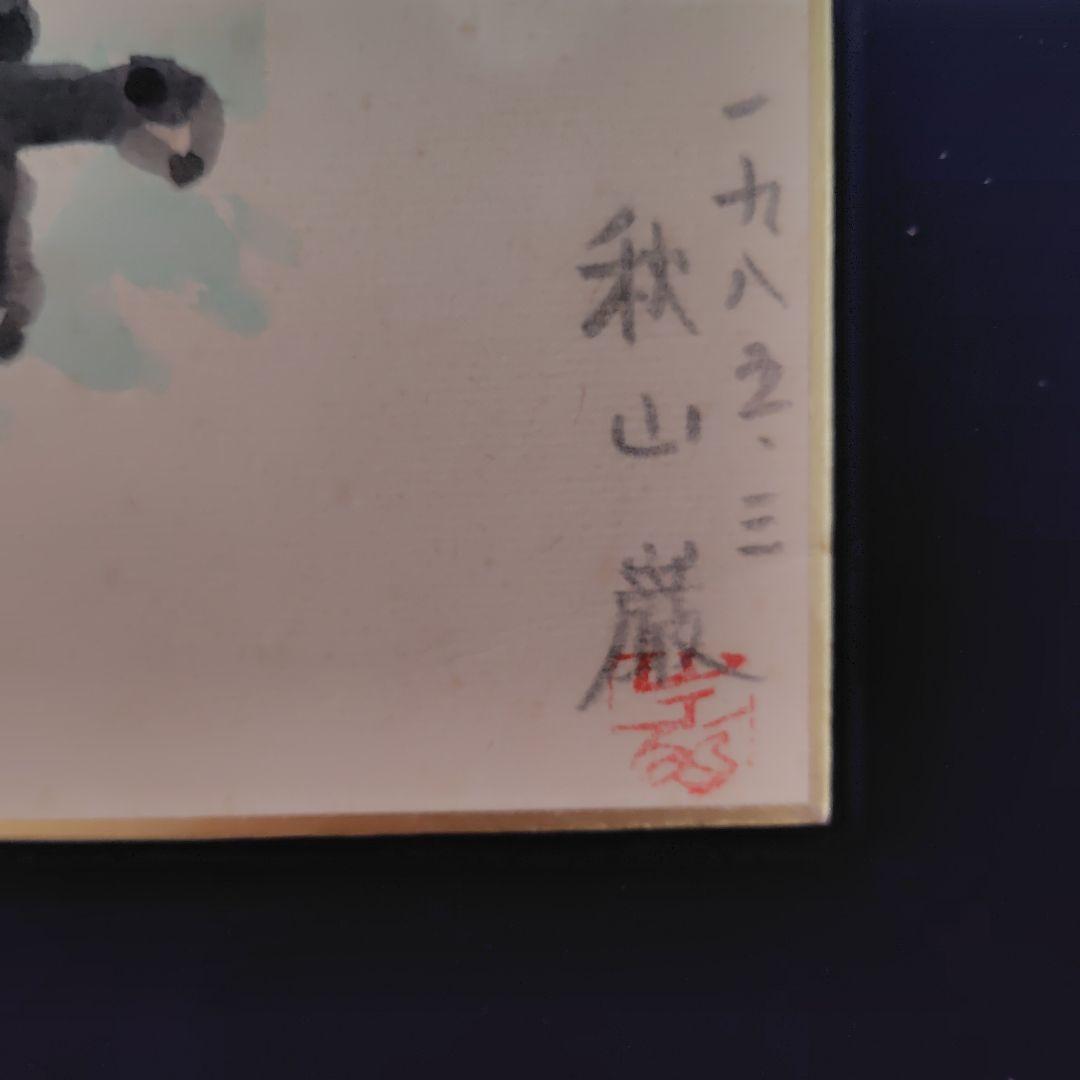 一九八五、三
秋山巌